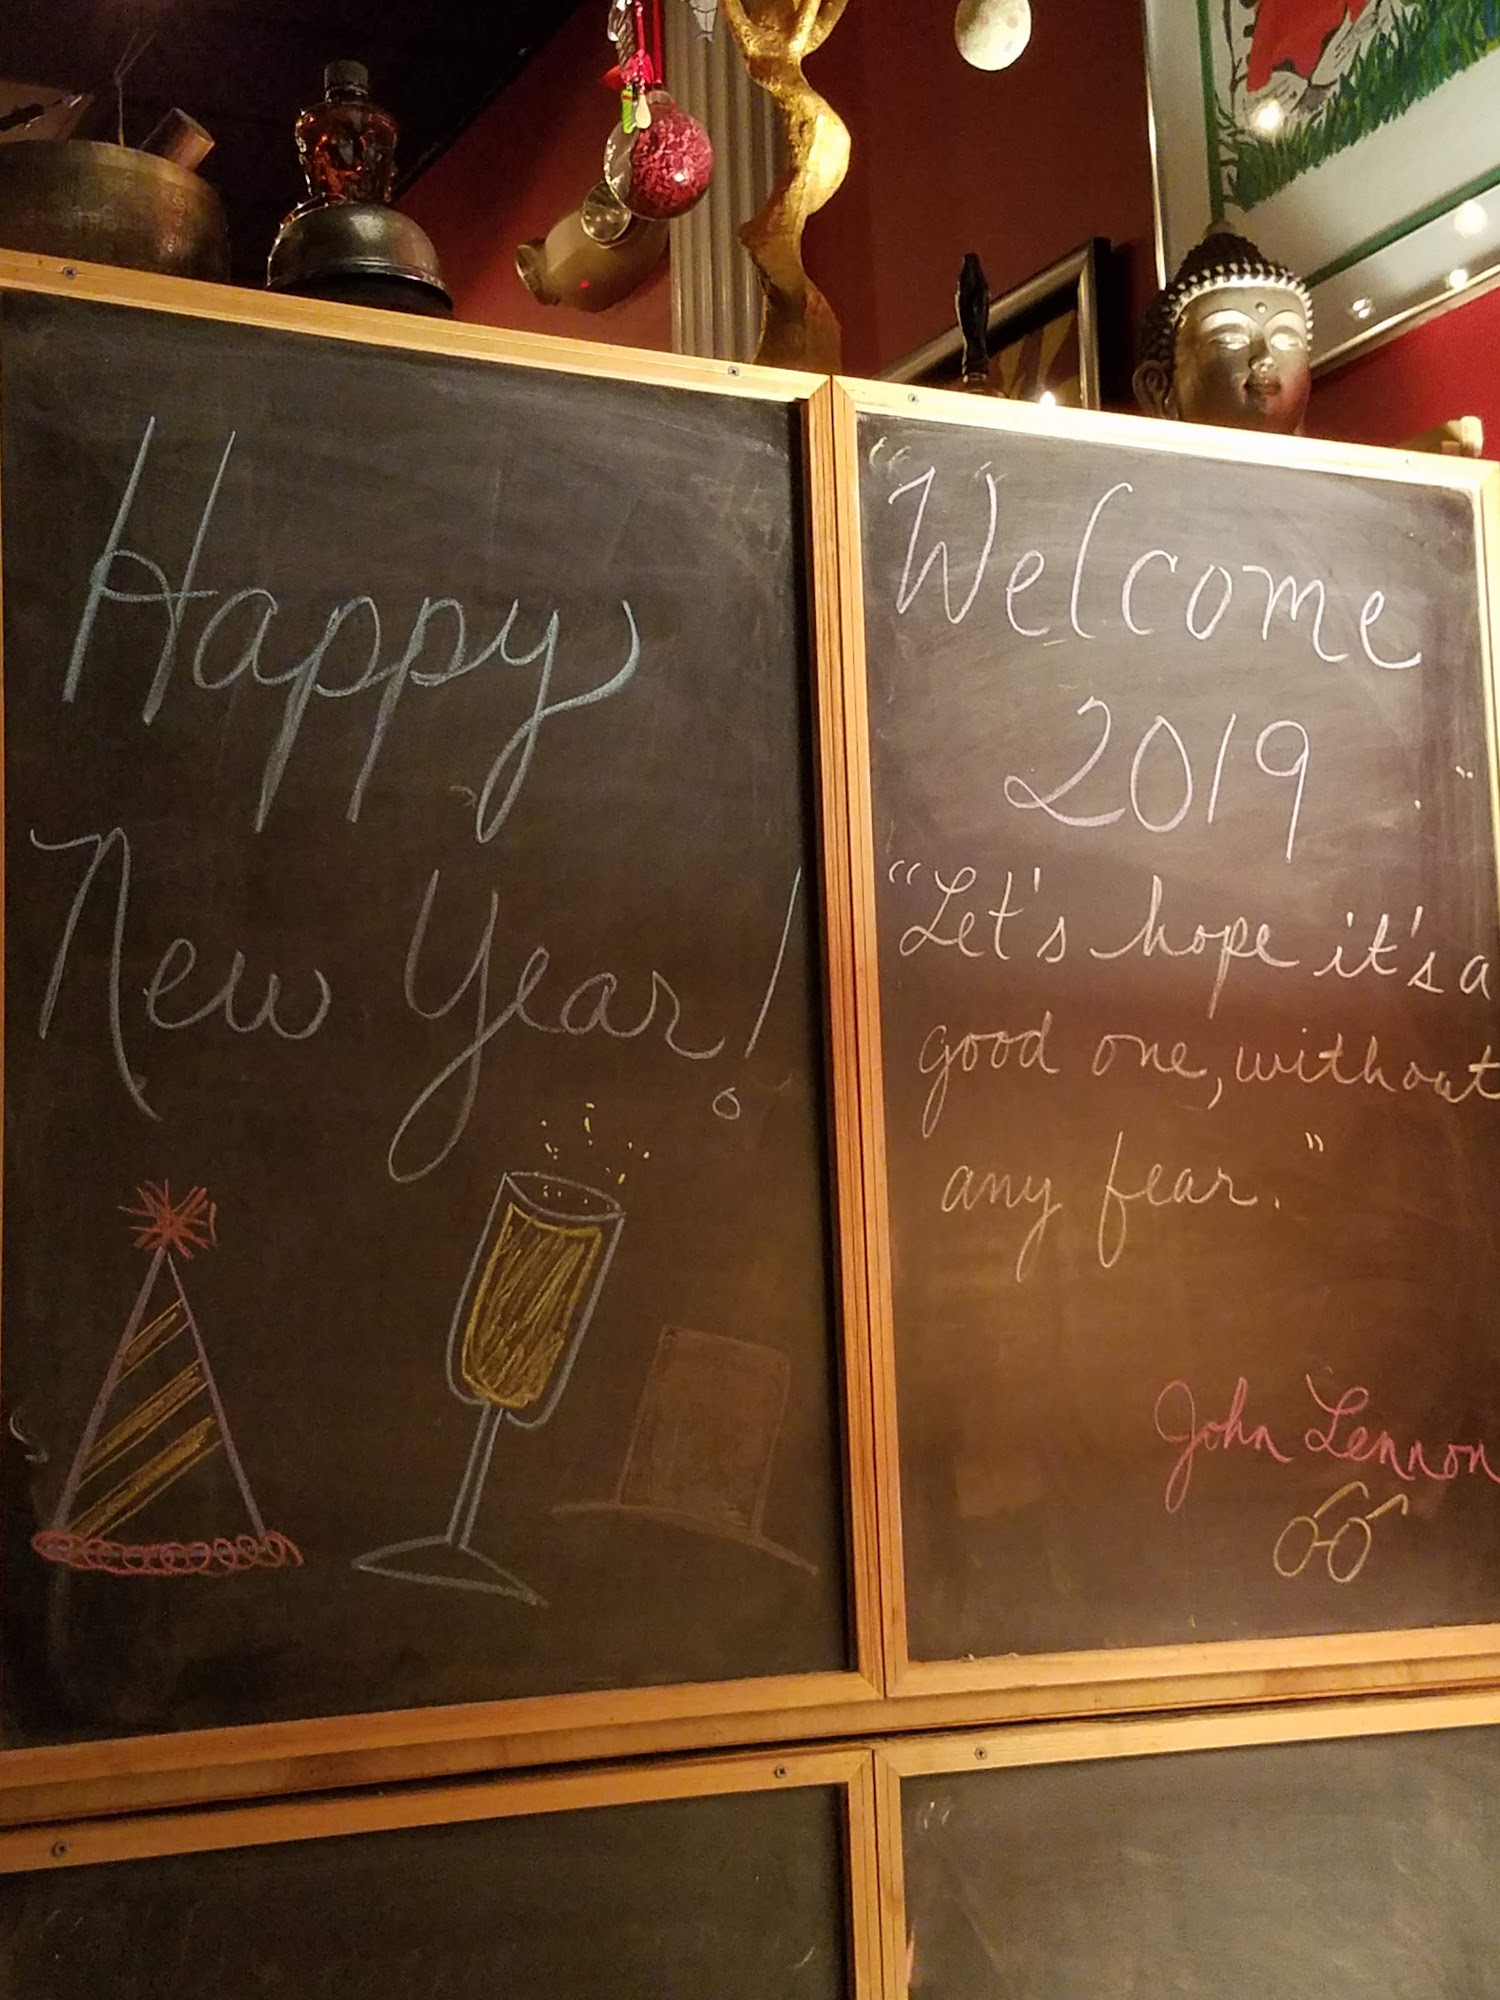 Happy
New Year!
Welcome
2019
"Let's hope it's a
good one, without
any fear."
John Lennon